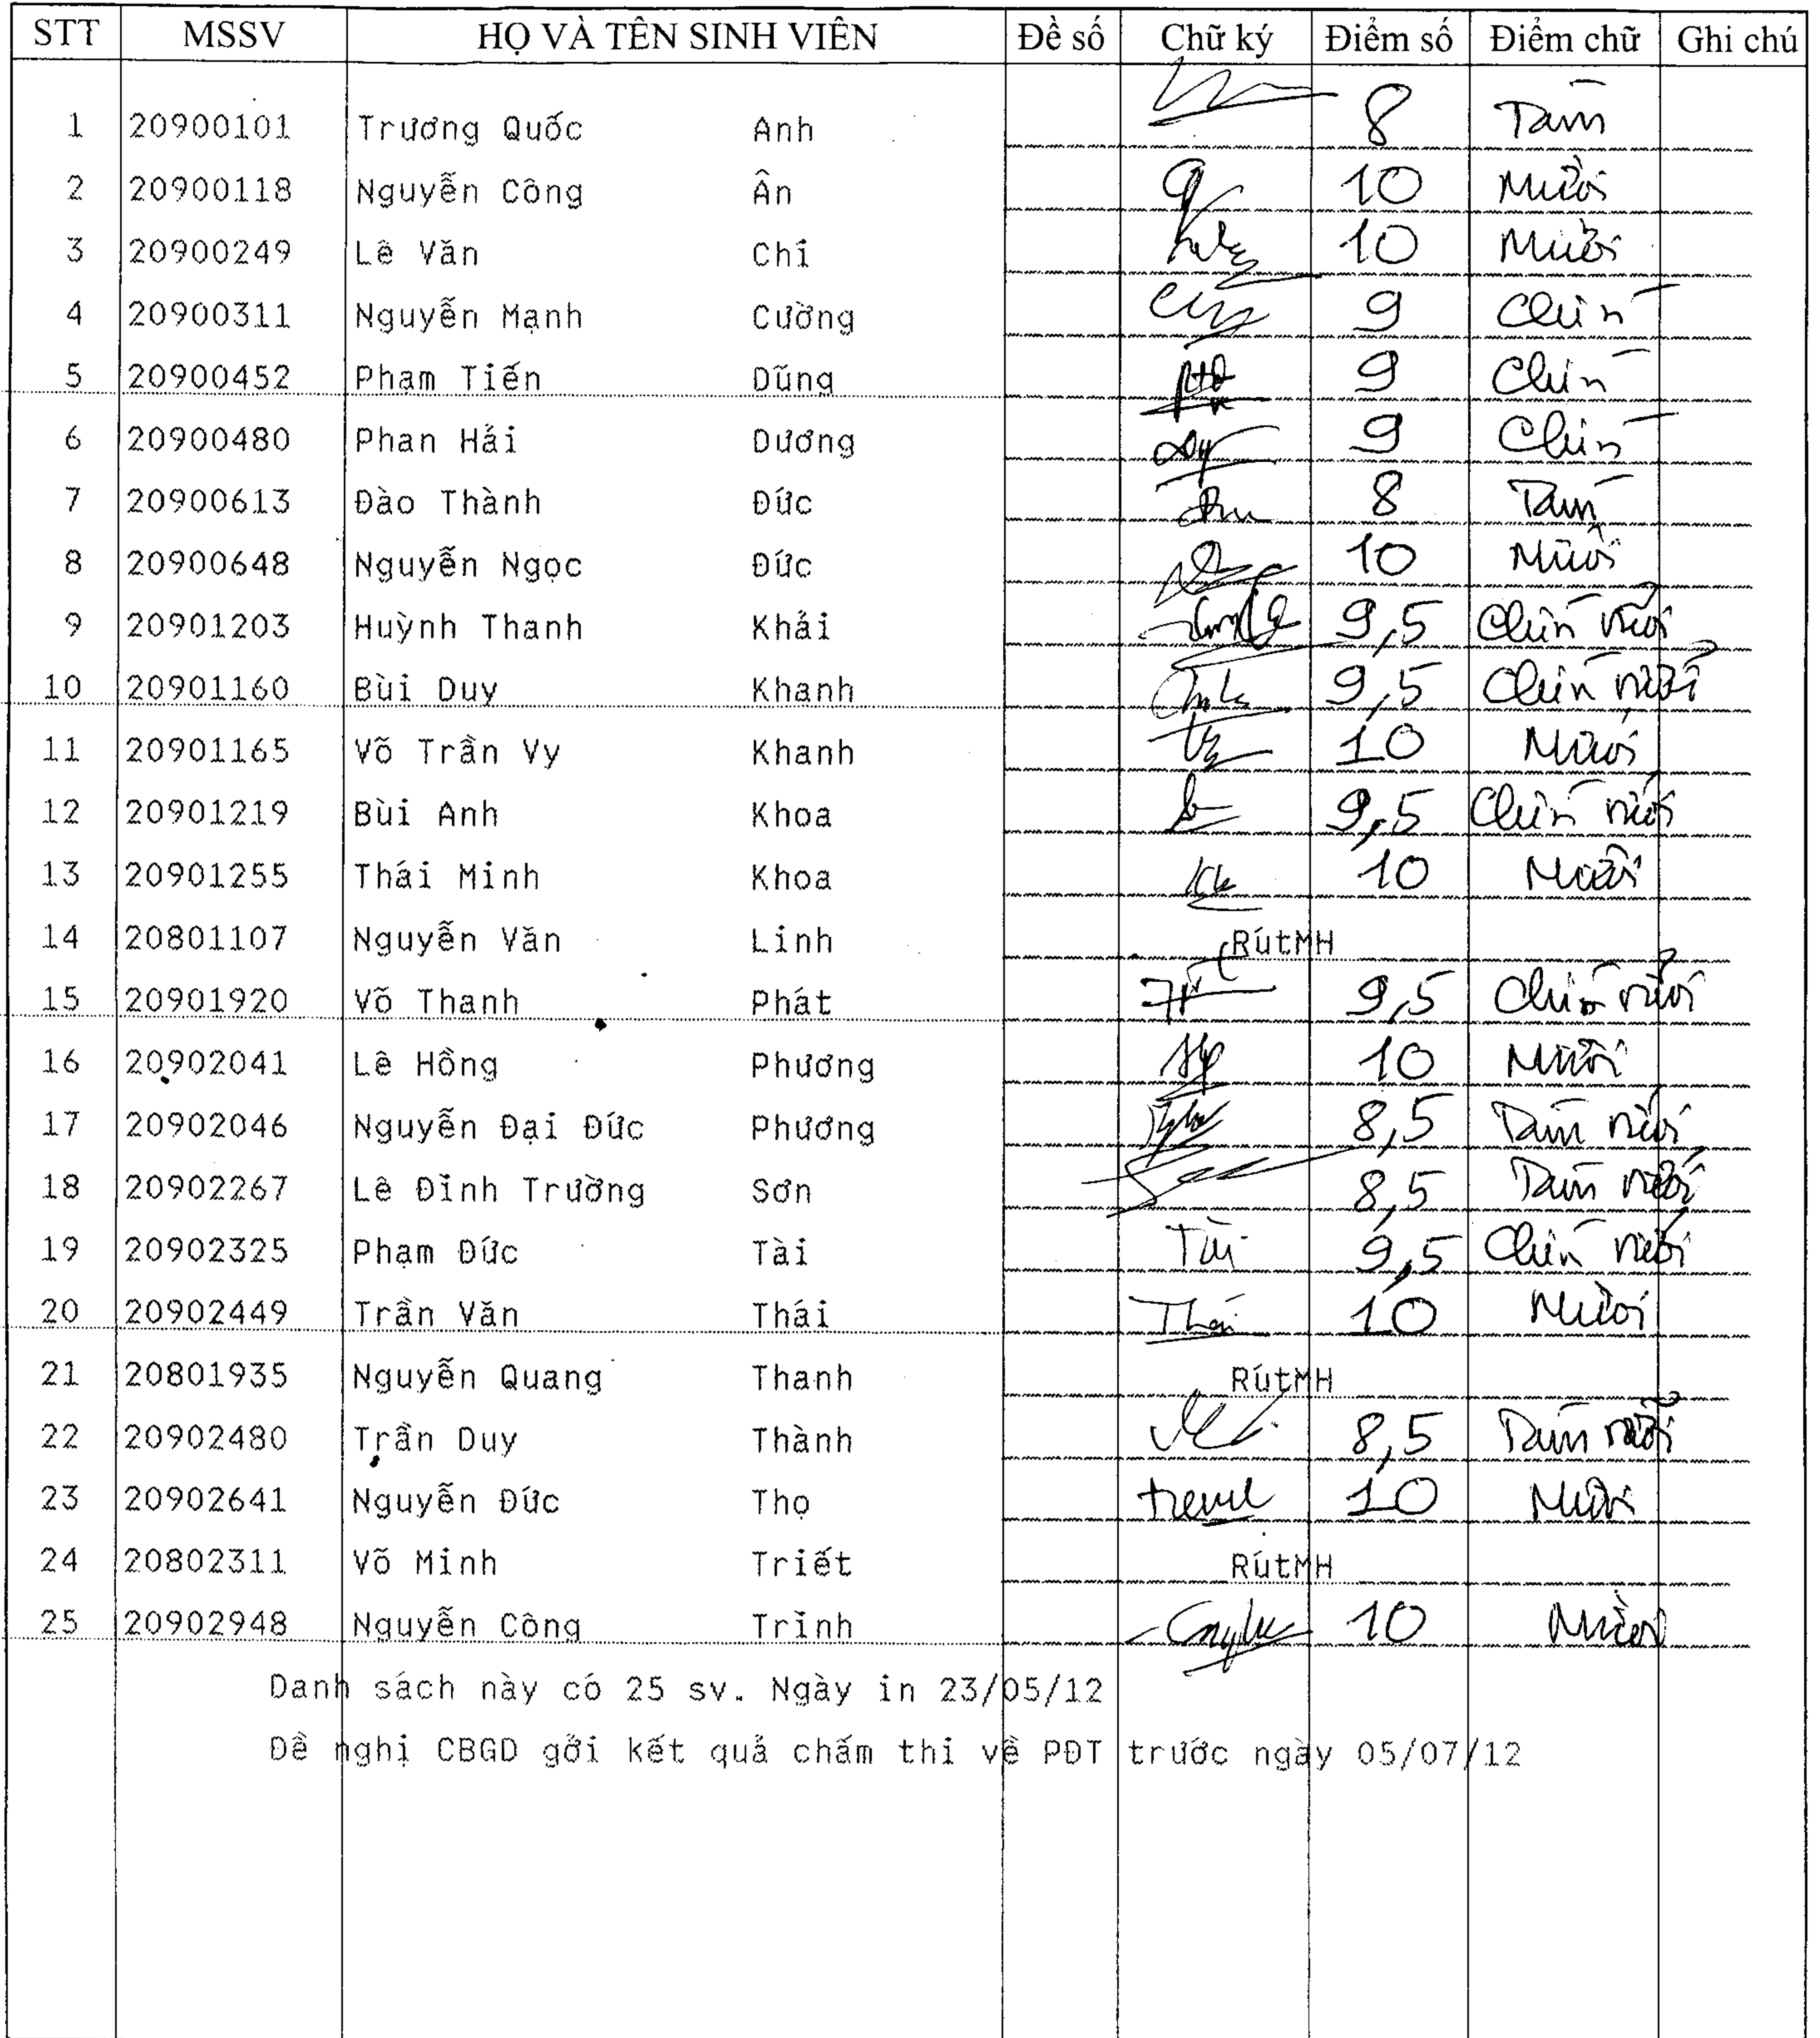 STT MSSV HỌ VÀ TÊN SINH VIÊN Đề số Chữ ký Điểm số Điểm chữ Ghi chú
1 20900101 Trương Quốc Anh 8 Tám
2 20900118 Nguyễn Công Ân 10 Mười
3 20900249 Lê Văn Chí 10 Mười
4 20900311 Nguyễn Mạnh Cường 9 Chín
5 20900452 Phạm Tiến Dũng 9 Chín
6 20900480 Phan Hải Dương 9 Chín
7 20900613 Đào Thành Đức 8 Tám
8 20900648 Nguyễn Ngọc Đức 10 Mười
9 20901203 Huỳnh Thanh Khải 9,5 Chín rưỡi
10 20901160 Bùi Duy Khanh 9,5 Chín rưỡi
11 20901165 Võ Trần Vy Khanh 10 Mười
12 20901219 Bùi Anh Khoa 9,5 Chín rưỡi
13 20901255 Thái Minh Khoa 10 Mười
14 20801107 Nguyễn Văn Linh RútMH
15 20901920 Võ Thanh Phát 9,5 Chín rưỡi
16 20902041 Lê Hồng Phương 10 Mười
17 20902046 Nguyễn Đại Đức Phương 8,5 Tám rưỡi
18 20902267 Lê Đình Trường Sơn 8,5 Tám rưỡi
19 20902325 Phạm Đức Tài Tài 9,5 Chín rưỡi
20 20902449 Trần Văn Thái Thái 10 Mười
21 20801935 Nguyễn Quang Thanh RútMH
22 20902480 Trần Duy Thành 8,5 Tám rưỡi
23 20902641 Nguyễn Đức Thọ 10 Mười
24 20802311 Võ Minh Triết RútMH
25 20902948 Nguyễn Công Trình 10 Mười
Danh sách này có 25 sv. Ngày in 23/05/12
Đề nghị CBGD gởi kết quả chấm thi về PĐT trước ngày 05/07/12